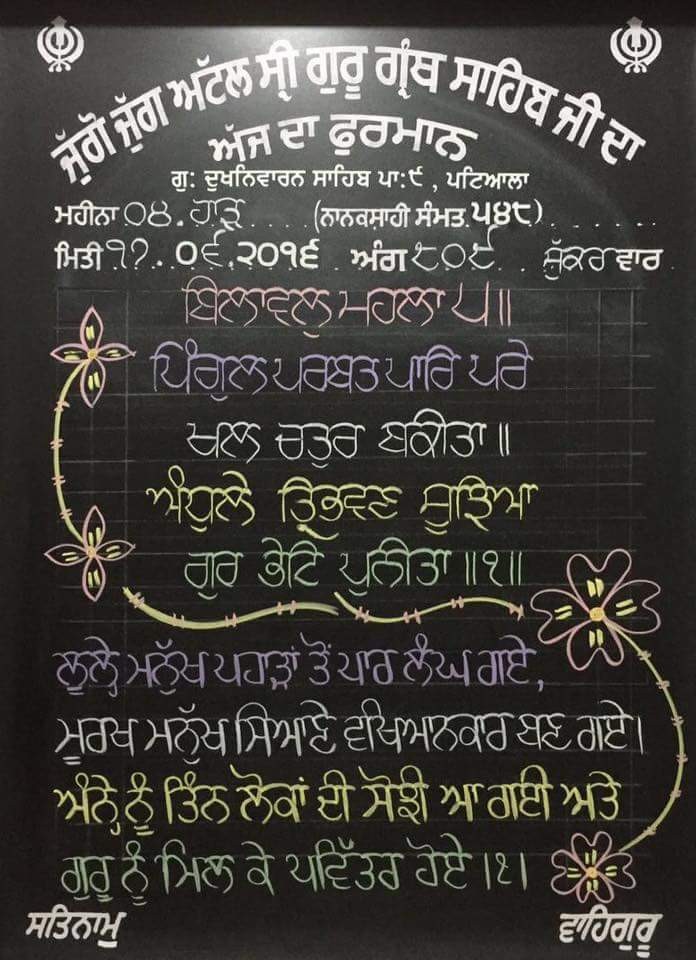 ਜੁੱਗੋ ਜੁੱਗ ਅਟੱਲ ਸ੍ਰੀ ਗੁਰੂ ਗ੍ਰੰਥ ਸਾਹਿਬ ਜੀ ਦਾ
ਅੱਜ ਦਾ ਫੁਰਮਾਨ
ਗੁ: ਦੁਖਨਿਵਾਰਨ ਸਾਹਿਬ ਪਾ:੯ , ਪਟਿਆਲਾ
ਮਹੀਨਾ ੦੪. ਹਾੜ (ਨਾਨਕਸਾਹੀ ਸੰਮਤ ੫੪੮)
ਮਿਤੀ ੧੭. ੦੬.੨੦੧੬ ਅੰਗ ੮੦੯ ਸ਼ੁੱਕਰ ਵਾਰ
ਬਿਲਾਵਲੁ ਮਹਲਾ ੫॥
ਪਿੰਗੁਲ ਪਰਬਤ ਪਾਰਿ ਪਰੇ
ਖਲ ਚਤੁਰ ਬਕੀਤਾ॥
ਅੰਧੁਲੇ ਤ੍ਰਿਭਵਣ ਸੂਝਿਆ
ਗੁਰ ਭੇਟਿ ਪੁਨੀਤਾ॥੧॥
ਲੂਲ੍ਹੇ ਮਨੁੱਖ ਪਹਾੜਾਂ ਤੋਂ ਪਾਰ ਲੰਘ ਗਏ,
ਮੂਰਖ ਮਨੁੱਖ ਸਿਆਣੇ ਵਖਿਆਨਕਾਰ ਬਣ ਗਏ।
ਅੰਨ੍ਹੇ ਨੂੰ ਤਿੰਨ ਲੋਕਾਂ ਦੀ ਸੋਝੀ ਆ ਗਈ ਅਤੇ
ਗੁਰੂ ਨੂੰ ਮਿਲ ਕੇ ਪਵਿੱਤਰ ਹੋਏ।੧।
ਸਤਿਨਾਮੁ ਵਾਹਿਗੁਰੂ